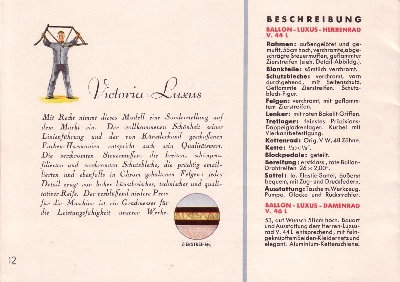 Victoria-Luxus
Mit Recht nimmt dieses Modell eine Sonderstellung auf
dem Markt ein. Der vollkommenen Schönheit seiner
Linienführung und der von Künstlerhand geschaffenen
Farben-Harmonien entspricht auch sein Qualitätswert.
Die verchromten Steuermuffen, die breiten, schinen-
und ebenfalls in Chrom gehaltenen Felgen: jedes
Detail zeugt von hoher künstlerischer, technischer und quali-
tativer Reife. Der verblüffend niedere Preis
für die Maschine ist ein Gradmesser für
die Leistungsfähigkeit unserer Werke.
ZIERSTREIFEN
12
BESCHREIBUNG
BALLON-LUXUS-HERRENRAD
V. 44 L
Rahmen: außengelötet und ge-
mufft, 55 cm hoch, verchromte, abge-
schrägte Steuermuffen, geflammter
Zierstreifen (sieh. Detail-Abbildg.).
Blankteile: sämtlich verchromt.
Schutzbleche: verchromt, vorn
durchgehend, mit Seitenschutz.
Geflammte Zierstreifen. Schutz-
blech-Figur.
Felgen: verchromt, mit geflamm-
tem Zierstreifen.
Lenker: mit roten Bakelit-Griffen.
Tretlager: feinstes Präzisions-
Doppelglockenlager. Kurbel mit
Vierkantbefestigung.
Kettenrad: Orig. V. W., 48 Zähne.
Kette:
Blockpedale: geteilt.
Bereifung: erstklass., rote Ballon-
Drahtreifen 26 × 2,00".
Sattel: Ia. Elastic-Sattel, äußerst
bequem, mit Zug- und Druckfedern.
Ausstattung: Tasche m. Werkzeug,
Pumpe, Glocke und Rückstrahler.
BALLON-LUXUS-DAMENRAD
V. 46 L
53, auf Wunsch 58 cm hoch. Bauart
und Ausstattung dem Herren-Luxus-
rad V. 44 L entsprechend, mit fein-
geknüpftem Seiden-Kleidernetz und
elegant. Aluminium-Kettenschiene.